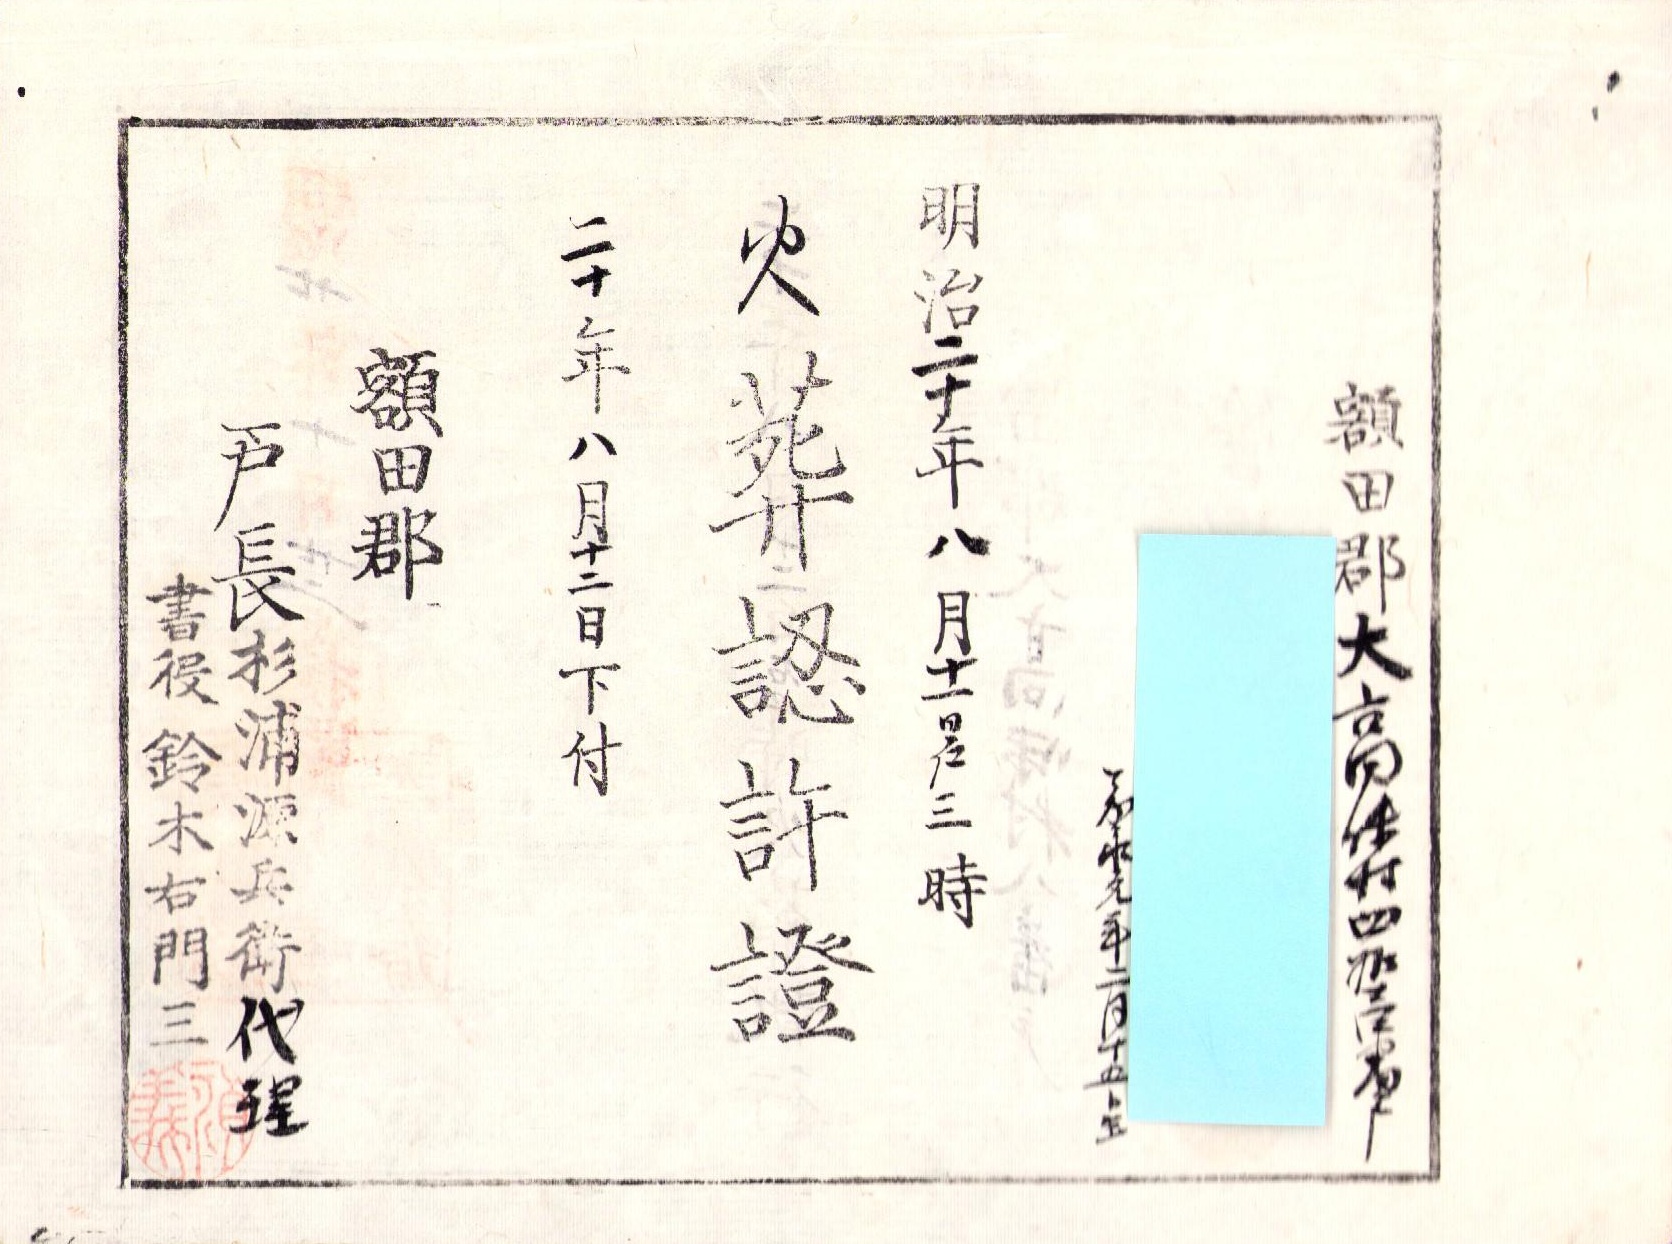 額田郡大高味村四拾六番戸
嘉永元年二月十五日生
明治二十年八月十一日午后三時
火葬認許證
二十年八月十二日下付
額田郡
戸長杉浦源兵衛代理
書役鈴木右門三